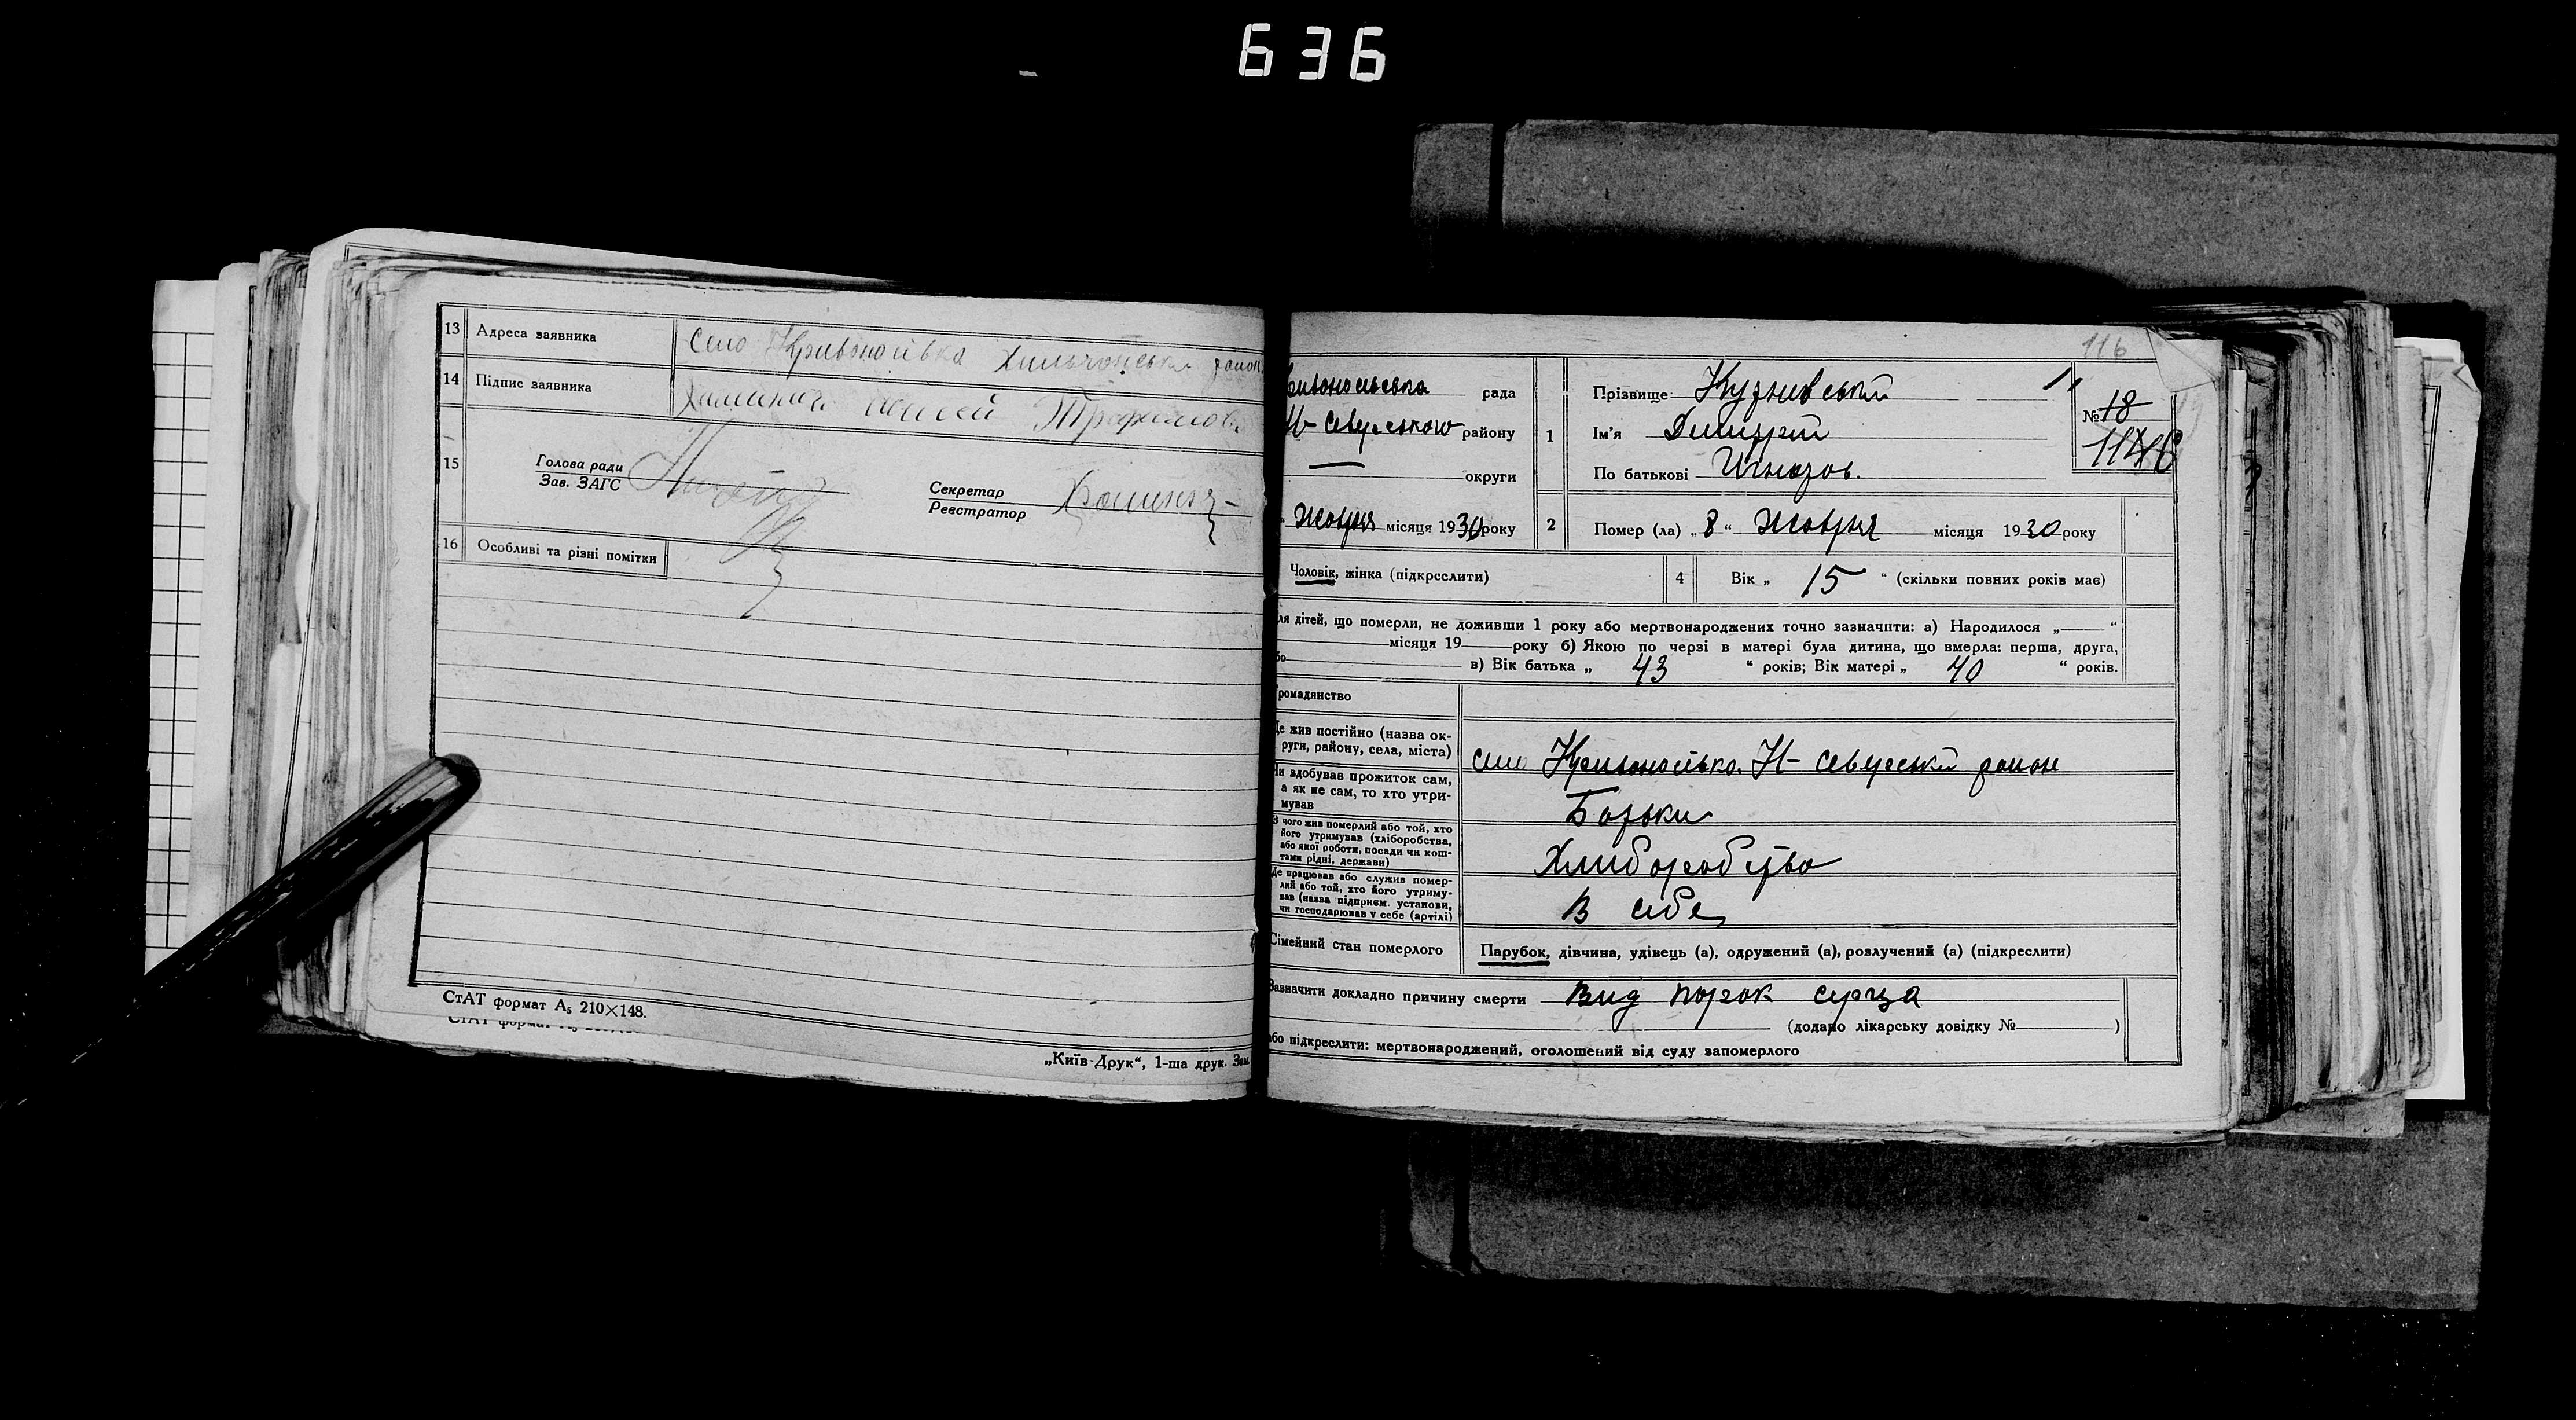 636
13 Адреса заявника село Кривоносівка Хильчанський район
14 Підпис заявника
15 Голова ради
Зав. ЗАГС
Секретар
Реєстратор
16 Особливі та різні помітки
СтАТ формат А₅ 210×148.
„Київ-Друк“, 1-ша друк. Зам.
116
ривоносівська рада
Н-Сіверського району
— округи
Жовтня місяця 1930 року
1 Прізвище
Ім'я Дмитрий
По батькові Игнатов.
№ 18
1146
2 Помер (ла) „8“ Жовтня місяця 1930 року
Чоловік, жінка (підкреслити)
4 Вік „ 15 “ (скільки повних років має)
ля дітей, що померли, не доживши 1 року або мертвонароджених точно зазначити: а) Народилося „—“
місяця 19 року б) Якою по черзі в матері була дитина, що вмерла: перша, друга,
бо в) Вік батька „ 43 “ років; Вік матері „ 40 “ років.
ромадянство
Де жив постійно (назва ок-
руги, району, села, міста) село Кривоносівка Н-Сіверський район
Чи здобував прожиток сам,
а як не сам, то хто утри-
мував Батьки
З чого жив померлий або той, хто
його утримував (хліборобства,
або якої роботи, посади чи кош-
тами рідні, держави) Хлиборобство
Де працював або служив помер-
лий або той, хто його утриму-
вав (назва підприєм. установи,
чи господарював у себе (артілі) В себе
Сімейний стан померлого Парубок, дівчина, удівець (а), одружений (а), розлучений (а) (підкреслити)
Зазначити докладно причину смерти Вид порок серца
(додано лікарську довідку № )
або підкреслити: мертвонароджений, оголошений від суду запомерлого